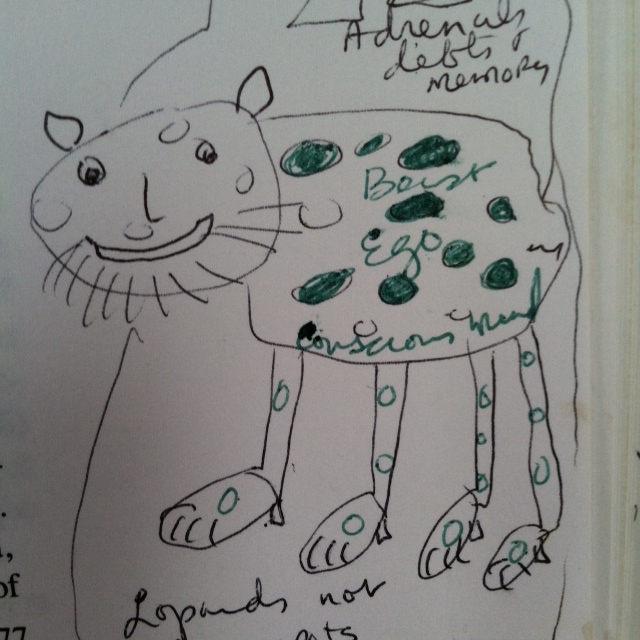 Adrenals
debts &
memory
Beast
Ego
Conscious mind
not
of
77